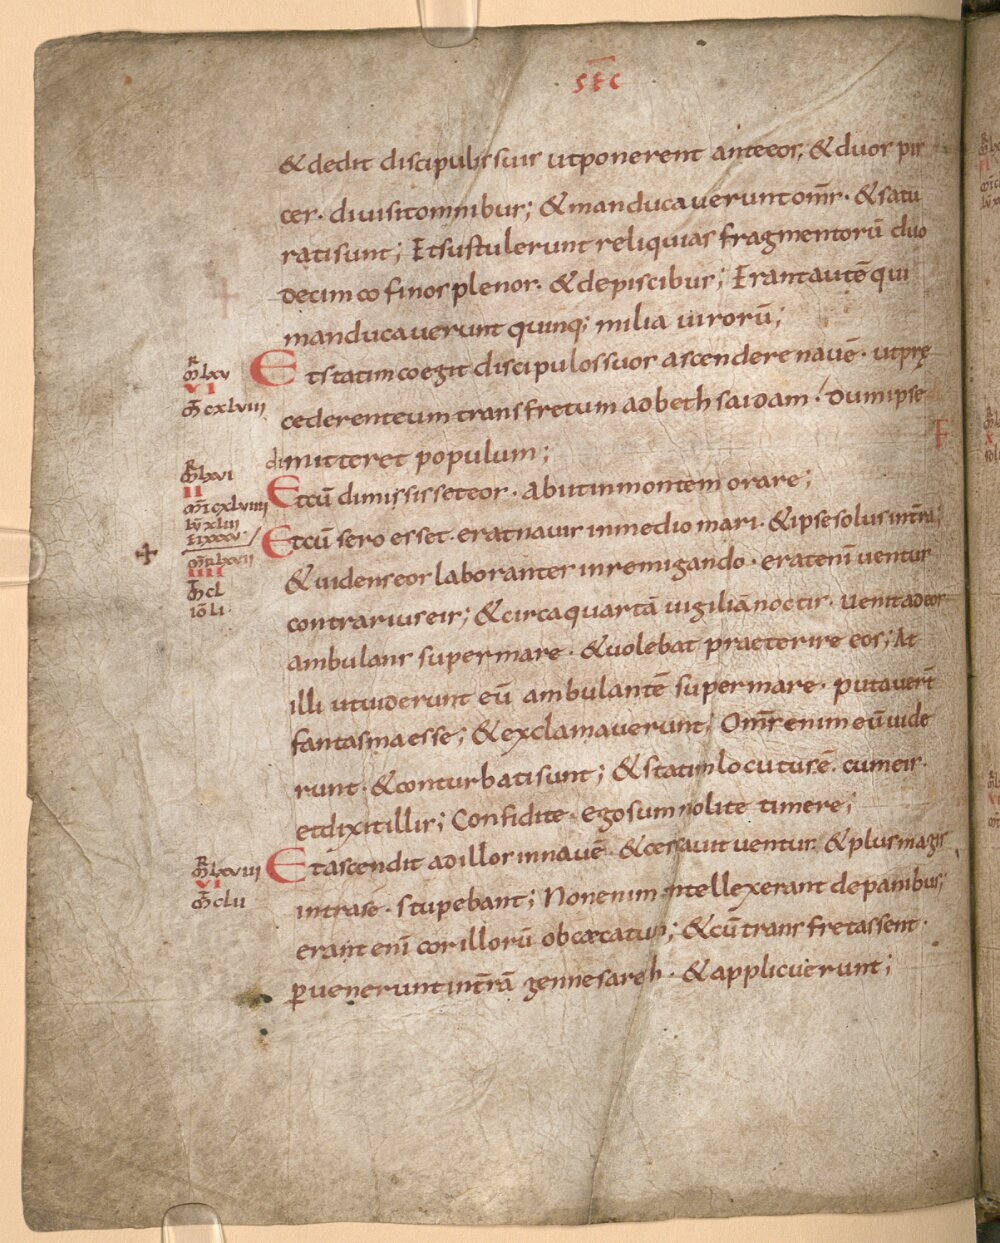 SEC
& dedit discipulis suis ut ponerent ante eos, & duos pis
ces· diuisit omnibus; & manducauerunt om̅s· & satu
rati sunt; Et sustulerunt reliquias fragmentorū duo
decim cofinos plenos· & de piscibus; Erant autē qui
manducauerunt quinq; milia uirorū;
Et statim coegit discipulos suos ascendere nauē· ut prę
cederent eum trans fretum ad bethsaidam / Dum ipse
dimitteret populum;
Et cū dimississet eos· abiit in montem orare;
Et cū sero esset· erat nauis in medio mari· & ipse solus in t̅ra;
& uidens eos laborantes in remigando· erat eni̅ uentus
contrarius eis; & circa quartā uigiliā noctis· uenit ad eos
ambulans super mare· & uolebat praeterire eos; At
illi ut uiderunt eū ambulantē super mare· putauer̅t
fantasma esse; & exclamauerunt; Om̅s enim eū uide
runt· & conturbati sunt; & statim locutus ē· cum eis·
et dixit illis; Confidite· ego sum nolite timere;
Et ascendit ad illos in nauē· & cessauit uentus· & plus magis
intra se· stupebant; Non enim intellexerant de panibus;
erant eni̅ cor illorū obcæcatum; & cū trans fretassent·
p̱uenerunt in t̅rā gennesareh· & applicuerunt;
R
m̅ lxv
VI
m̅ cxlviii
R
m̅ lxvi
II
m̅t cxlviiii
lū xliii
R
m̅ lxvii
IIII
m̅ cl
iō li·
R
m̅ lxviii
VI
m̅ clii